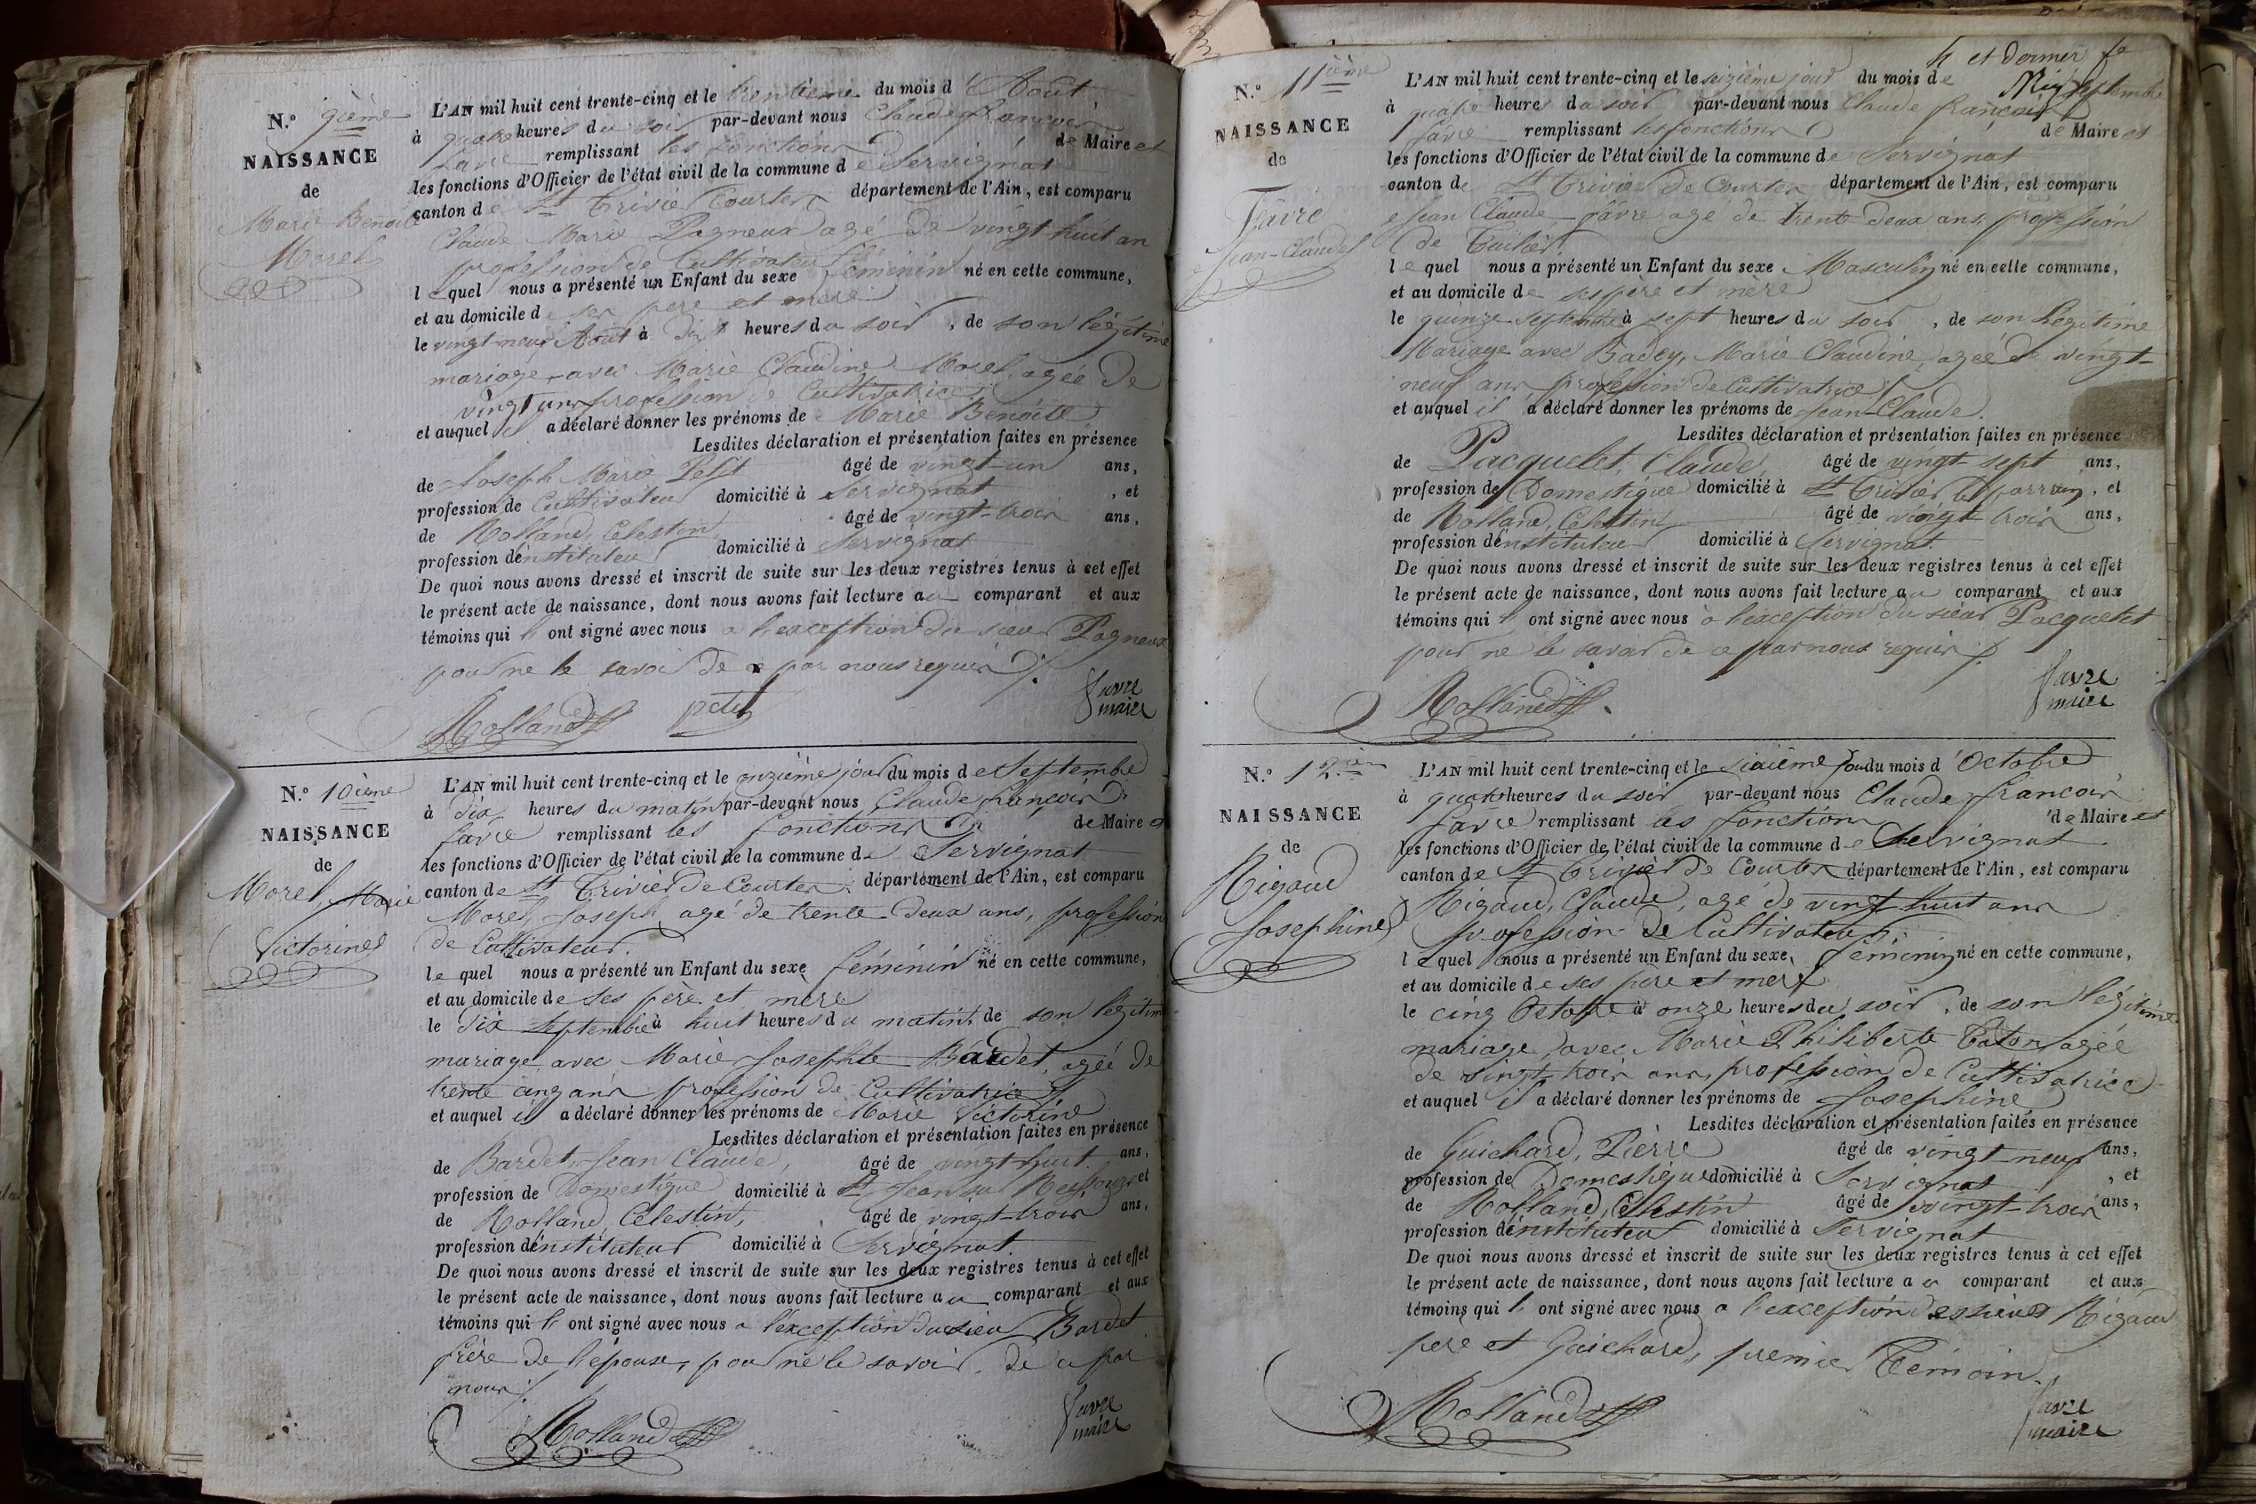 N.o 9ième
NAISSANCE
de
Marie Benoite
Morel
L'AN mil huit cent trente-cinq et le trentième du mois d'Août
à quatre heures du soir par-devant nous Claude françois
favre remplissant les fonctions de Maire et
les fonctions d'Officier de l'état civil de la commune de Servignat
canton de St Trivier Courtes département de l'Ain, est comparu
Claude Marie Pagneux agé de vingt huit an
profession de Cultivateur
lequel nous a présenté un Enfant du sexe féminin né en cette commune,
et au domicile de ses père et mère
le vingt neuf Août à dix heures du soir, de son légitime
mariage avec Marie Claudine Morel agée de
vingt ans profession de Cultivatrice
et auquel il a déclaré donner les prénoms de Marie Benoite
Lesdites déclaration et présentation faites en présence
de Joseph Marie Petit âgé de vingt-un ans,
profession de Cultivateur domicilié à Servignat, et
de Rolland, Célestin âgé de vingt-trois ans,
profession d'instituteur domicilié à Servignat
De quoi nous avons dressé et inscrit de suite sur les deux registres tenus à cet effet
le présent acte de naissance, dont nous avons fait lecture au comparant et aux
témoins qui l'ont signé avec nous à l'exception du sieur Pagneux
pour ne le savoir de ce par nous requis /.
Rolland petit favre
maire
N.o 10ième
NAISSANCE
de
Morel, Marie
Victorine
L'AN mil huit cent trente-cinq et le onzième jour du mois de Septembre
à dix heures du matin par-devant nous Claude françois
favre remplissant les fonctions de Maire et
les fonctions d'Officier de l'état civil de la commune de Servignat
canton de St Trivier de Courtes département de l'Ain, est comparu
Morel, Joseph, agé de trente deux ans, profession
de Cultivateur.
lequel nous a présenté un Enfant du sexe féminin né en cette commune,
et au domicile de ses père et mère
le dix Septembre à huit heures du matin, de son légitime
mariage avec Marie Josephte Bardet, agée de
trente cinq ans profession de Cultivatrice
et auquel il a déclaré donner les prénoms de Marie Victorine
Lesdites déclaration et présentation faites en présence
de Bardet, Jean Claude, âgé de vingt huit ans,
profession de Domestique domicilié à St Jean sur Ressouze et
de Rolland, Célestin, âgé de vingt-trois ans,
profession d'instituteur domicilié à Servignat
De quoi nous avons dressé et inscrit de suite sur les deux registres tenus à cet effet
le présent acte de naissance, dont nous avons fait lecture au comparant et aux
témoins qui l'ont signé avec nous a l'exception du sieur Bardet
frère de l'épouse, pour ne le savoir de ce par
nous /.
Rolland favre
maire
h et dernier fe
N.o 11ième
NAISSANCE
de
Favre
Jean-Claude
L'AN mil huit cent trente-cinq et le seizième jour du mois de Septembre
à quatre heures du soir par-devant nous Claude françois
favre remplissant les fonctions de Maire et
les fonctions d'Officier de l'état civil de la commune de Servignat
canton de St Trivier de Courtes département de l'Ain, est comparu
Jean Claude favre agé de trente deux ans profession
de Tuilier
lequel nous a présenté un Enfant du sexe Masculin né en cette commune,
et au domicile de ses père et mère
le quinze Septembre à sept heures du soir, de son Légitime
Mariage avec Badey, Marie Claudine, agée de vingt-
neuf ans profession de Cultivatrice /.
et auquel il a déclaré donner les prénoms de Jean-Claude.
Lesdites déclaration et présentation faites en présence
de Pacquelet, Claude, âgé de vingt sept ans,
profession de Domestique domicilié à St Trivier le parrain, et
de Rolland, Célestin âgé de vingt trois ans,
profession d'instituteur domicilié à Servignat.
De quoi nous avons dressé et inscrit de suite sur les deux registres tenus à cet effet
le présent acte de naissance, dont nous avons fait lecture au comparant et aux
témoins qui l'ont signé avec nous à l'exception du sieur Pacquelet
pour ne le savoir de ce par nous requis /.
Rolland favre
maire
N.o 12ième
NAISSANCE
de
Rigaud
Josephine
L'AN mil huit cent trente-cinq et le sixième jour du mois d'Octobre
à quatre heures du soir par-devant nous Claude françois
favre remplissant les fonctions de Maire et
les fonctions d'Officier de l'état civil de la commune de Servignat
canton de St Trivier de Courtes département de l'Ain, est comparu
Rigaud, Claude, agé de vingt huit ans
profession de Cultivateur
lequel nous a présenté un Enfant du sexe féminin né en cette commune,
et au domicile de ses père et mère
le cinq Octobre à onze heures du soir, de son légitime
mariage, avec Marie Philiberte Caton agée
de vingt trois ans, profession de Cultivatrice
et auquel il a déclaré donner les prénoms de Josephine
Lesdites déclaration et présentation faites en présence
de Guichard, Pierre âgé de vingt neuf ans,
profession de Domestique domicilié à Servignat, et
de Rolland, Célestin âgé de vingt-trois ans,
profession d'instituteur domicilié à Servignat
De quoi nous avons dressé et inscrit de suite sur les deux registres tenus à cet effet
le présent acte de naissance, dont nous avons fait lecture au comparant et aux
témoins qui l'ont signé avec nous à l'exception des sieurs Rigaud
père et Guichard, premier Témoin.
Rolland favre
maire